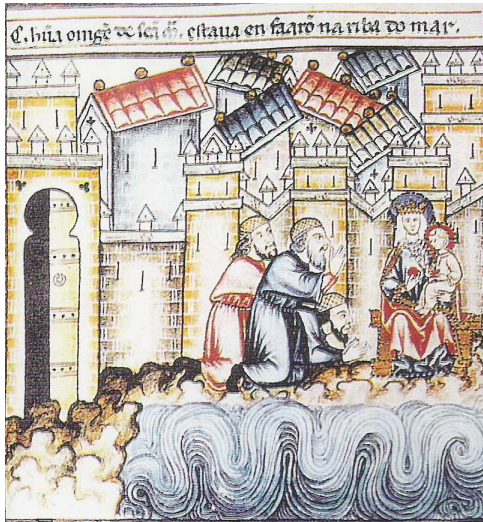 C. hũa omagẽ de scã m̃. estaua en faarõ na riba do mar.